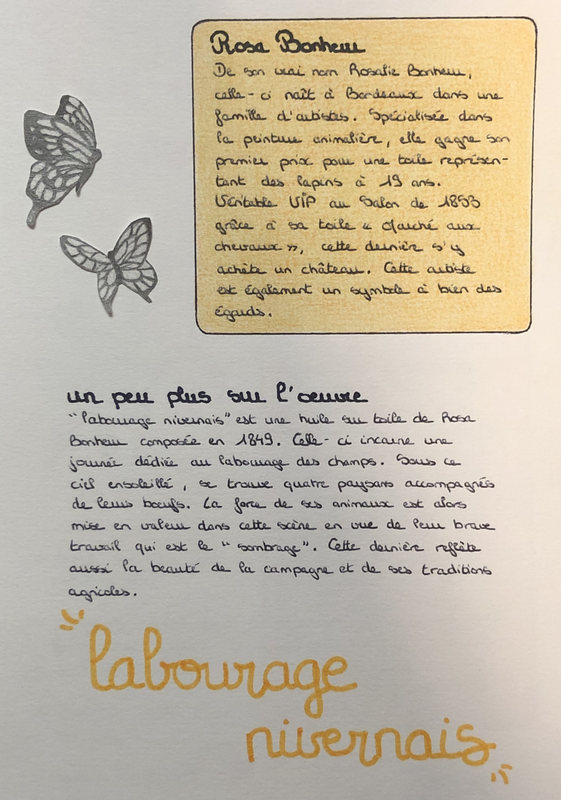 Rosa Bonheur
De son vrai nom Rosalie Bonheur,
celle-ci naît à Bordeaux dans une
famille d'artistes. Spécialisée dans
la peinture animalière, elle gagne son
premier prix pour une toile représen-
tant des lapins à 19 ans.
Véritable VIP au Salon de 1853
grâce à sa toile « Marché aux
chevaux », cette dernière s'y
achète un château. Cette artiste
est également un symbole à bien des
égards.
un peu plus sur l'oeuvre
"labourage nivernais" est une huile sur toile de Rosa
Bonheur composée en 1849. Celle-ci incarne une
journée dédiée au labourage des champs. Sous ce
ciel ensoleillé, se trouve quatre paysans accompagnés
de leurs boeufs. La force de ses animaux est alors
mise en valeur dans cette scène en vue de leur brave
travail qui est le "sombrage". Cette dernière reflète
aussi la beauté de la campagne et de ses traditions
agricoles.
"labourage
nivernais"